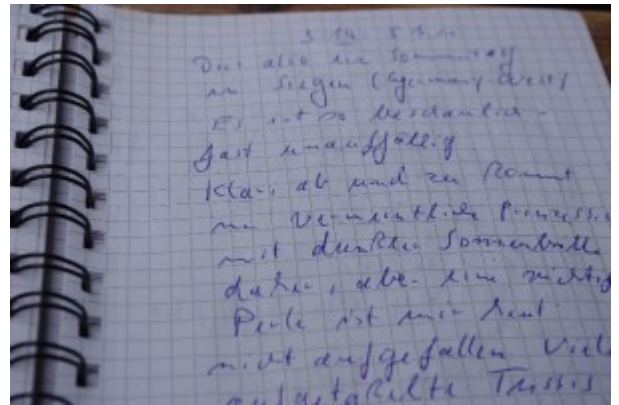 Das also ein Sommertag
in Siegen (Germany West)
Es ist so beschaulich -
fast unauffällig
Klar, ab und zu kommt
ne vermeintliche Prinzessin
mit dunkler Sonnenbrille
daher, aber eine richtig
Perle ist mir heut
nicht aufgefallen Viel
aufgetakelte Trussis